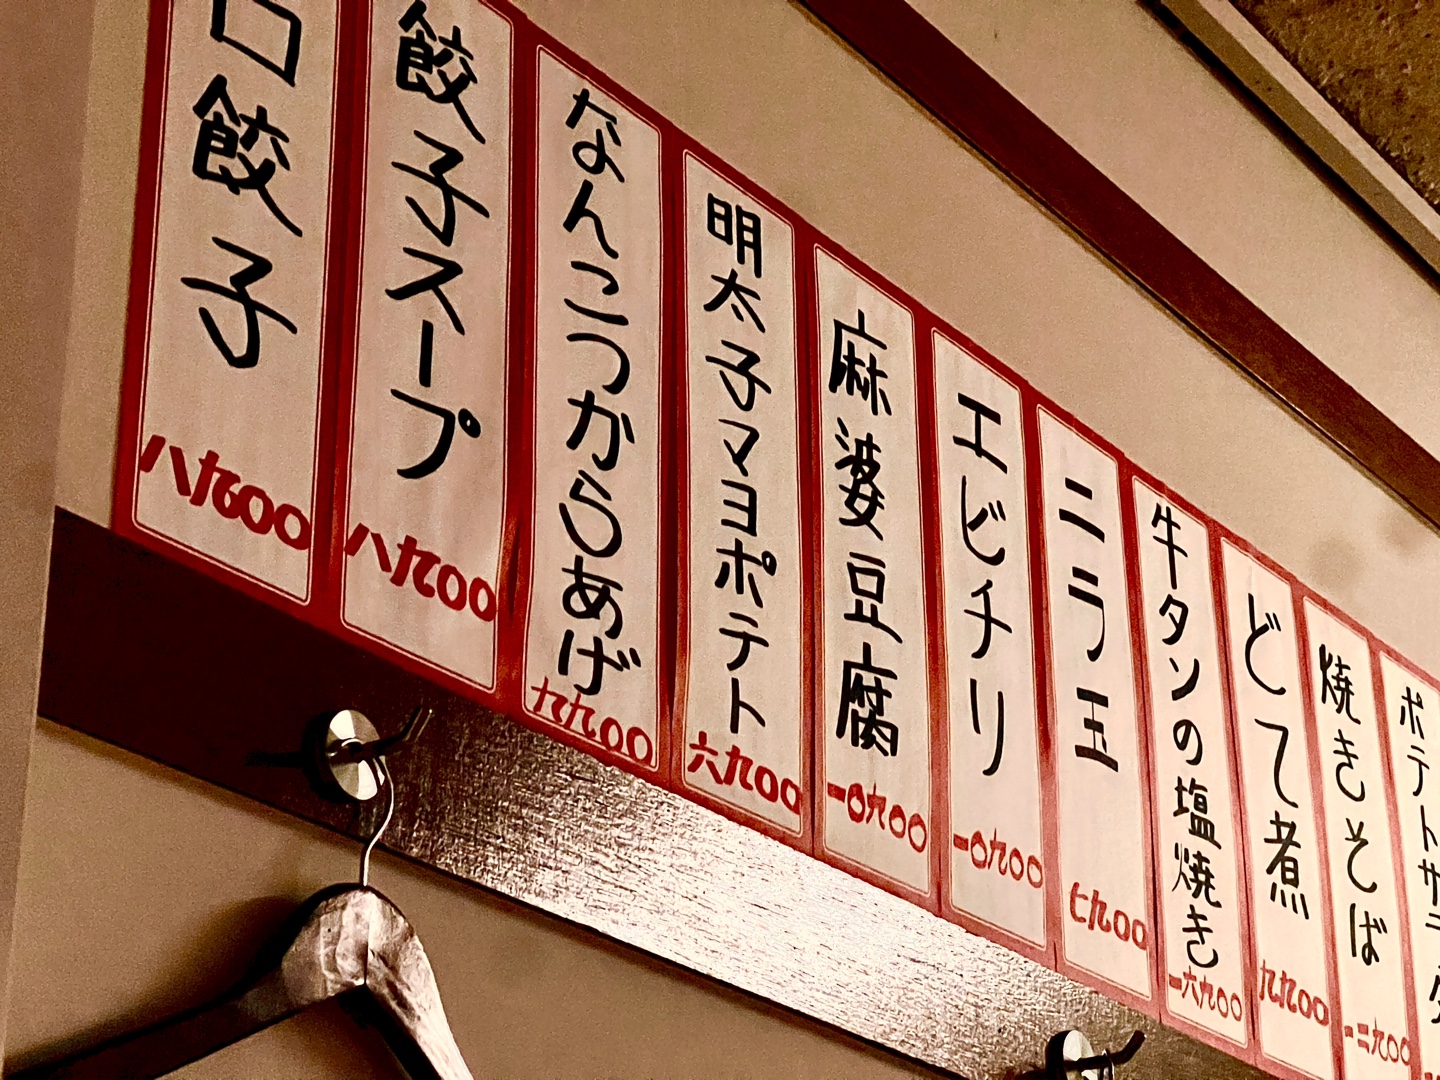 ポテトサラダ
焼きそば
一二九〇〇
どて煮
九九〇〇
牛タンの塩焼き
一六九〇〇
ニラ玉
七九〇〇
エビチリ
一〇九〇〇
麻婆豆腐
一〇九〇〇
明太子マヨポテト
六九〇〇
なんこつからあげ
九九〇〇
餃子スープ
八九〇〇
口餃子
八九〇〇